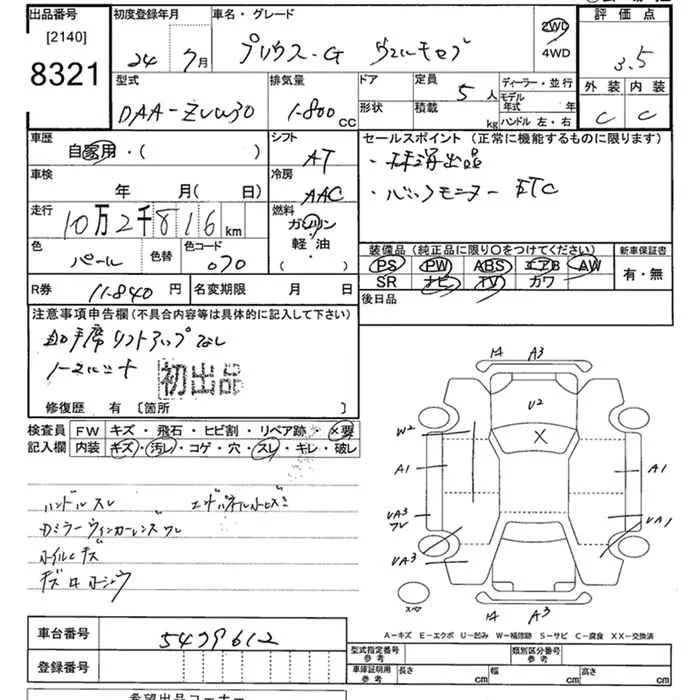 出品番号 初度登録年月 車名・グレード 2WD 評価点
[2140] 24年 7月 プリウス-G 4WD 3.5
8321
型式 排気量 ドア 定員 ディーラー・並行 外装 内装
DAA-ZVW30 1-800 CC 形状 積載 5人 kg モデル年式 年 C C
ハンドル 左・右
車歴 シフト セールスポイント (正常に機能するものに限ります)
自家用・( ) AT
車検 冷房 ・バックモニター ETC
年 月( 日) AAC
走行 燃料
10万2千816km ガソリン
軽・油
( )
色 色替 色コード 装備品 (純正品に限り○をつけてください) 新車保証書
パール 070 PS PW ABS エアB AW 有・無
SR ナビ TV カワ
R券 11-840円 名変期限 月 日 後日品
注意事項申告欄 (不具合内容等は具体的に記入して下さい)
助手席リフトアップなし
初出品
修復歴 有 [箇所 ]
検査員 FW キズ・飛石・ヒビ割・リペア跡・×要
記入欄 内装 キズ・汚レ・コゲ・穴・スレ・キレ・破レ
ハンドルスレ
ミラーウィンカーレンズワレ
14 A3
U2
X
W2
A1 A1
UA3 ワレ UA1
UA3
スペア
14 A3
A-キズ E-エクボ U-凹み W-補修跡 S-サビ C-腐食 XX-交換済
車台番号 5479612
登録番号
型式指定番号 参考 類別区分番号 参考
車庫証明用 参考 長さ cm 幅 cm 高さ cm
希望出品コーナー